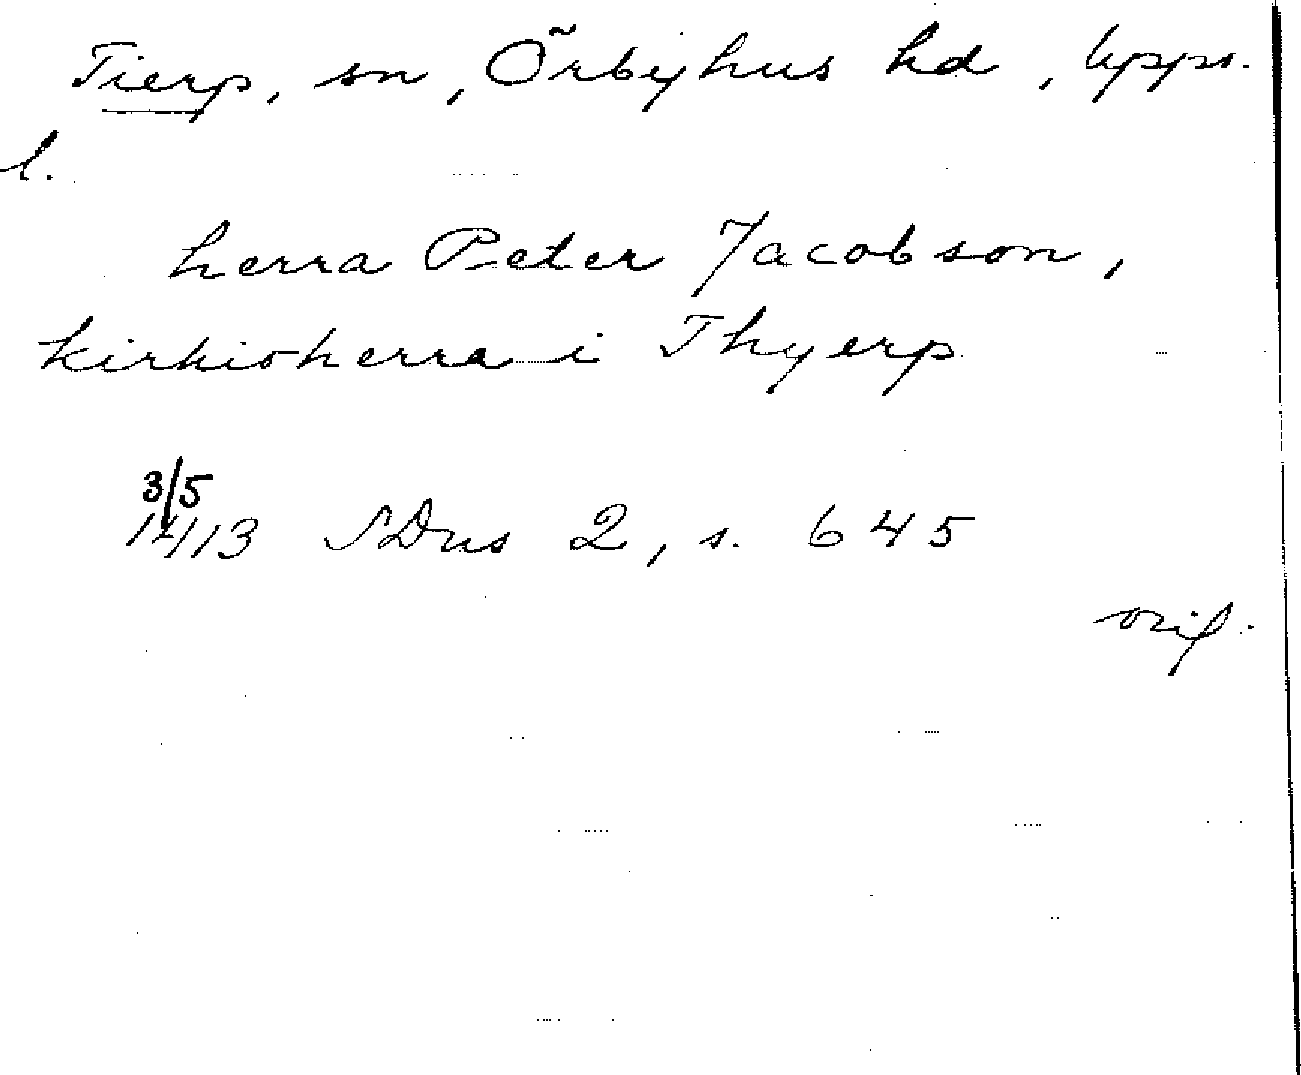 Tierp, sn, Örbyhus hd, Upps.
l.
herra Peter Jacobson,
kirkioherra i Thyerp
3/5
1413 SDns 2, s. 645
orig.